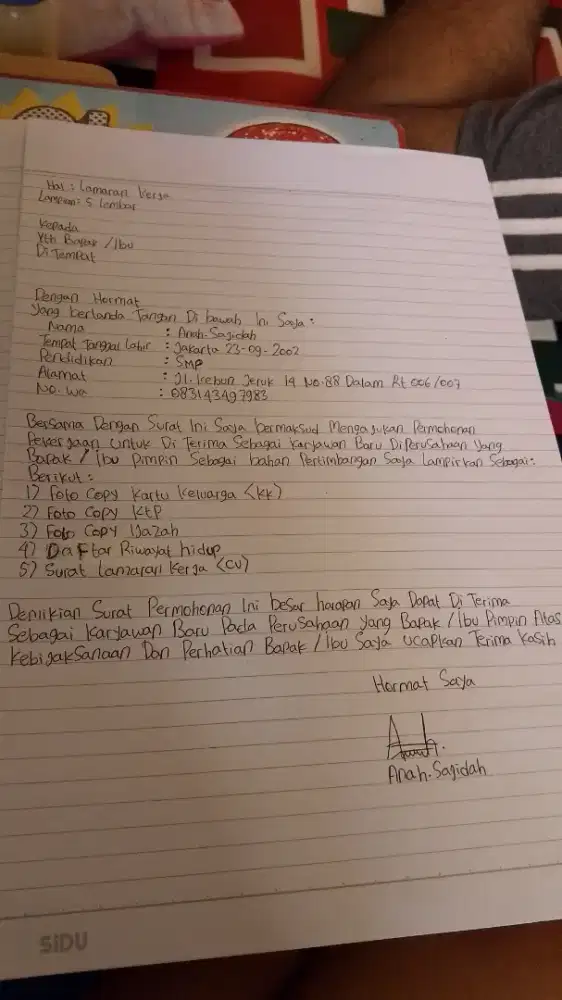 Hal : Lamaran Kerja
Lampiran : 5 Lembar
Kepada
Yth Bapak / Ibu
Di Tempat
Dengan Hormat
Yang bertanda Tangan Di bawah Ini Saya :
Nama : Anah. Sajidah
Tempat Tanggal Lahir : Jakarta 23-09-2002
Pendidikan : SMP
Alamat : Jl. Kebun Jeruk 19 No. 88 Dalam Rt 006/007
No. Wa : 083143497983
Bersama Dengan Surat Ini Saya bermaksud Mengajukan Permohonan
Pekerjaan Untuk Di Terima Sebagai Karyawan Baru Diperusahaan Yang
Bapak / Ibu Pimpin Sebagai bahan Pertimbangan Saya Lampirkan Sebagai :
Berikut :
1) Foto Copy Kartu Keluarga <KK>
2) Foto Copy KTP
3) Foto Copy Ijazah
4) Daftar Riwayat hidup
5) Surat Lamaran Kerja <CV>
Demikian Surat Permohonan Ini besar harapan Saya Dapat Di Terima
Sebagai Karyawan Baru Pada Perusahaan Yang Bapak / Ibu Pimpin Atas
Kebijaksanaan Dan Perhatian Bapak / Ibu Saya Ucapkan Terima Kasih
Hormat Saya
Anah. Sajidah
SiDU